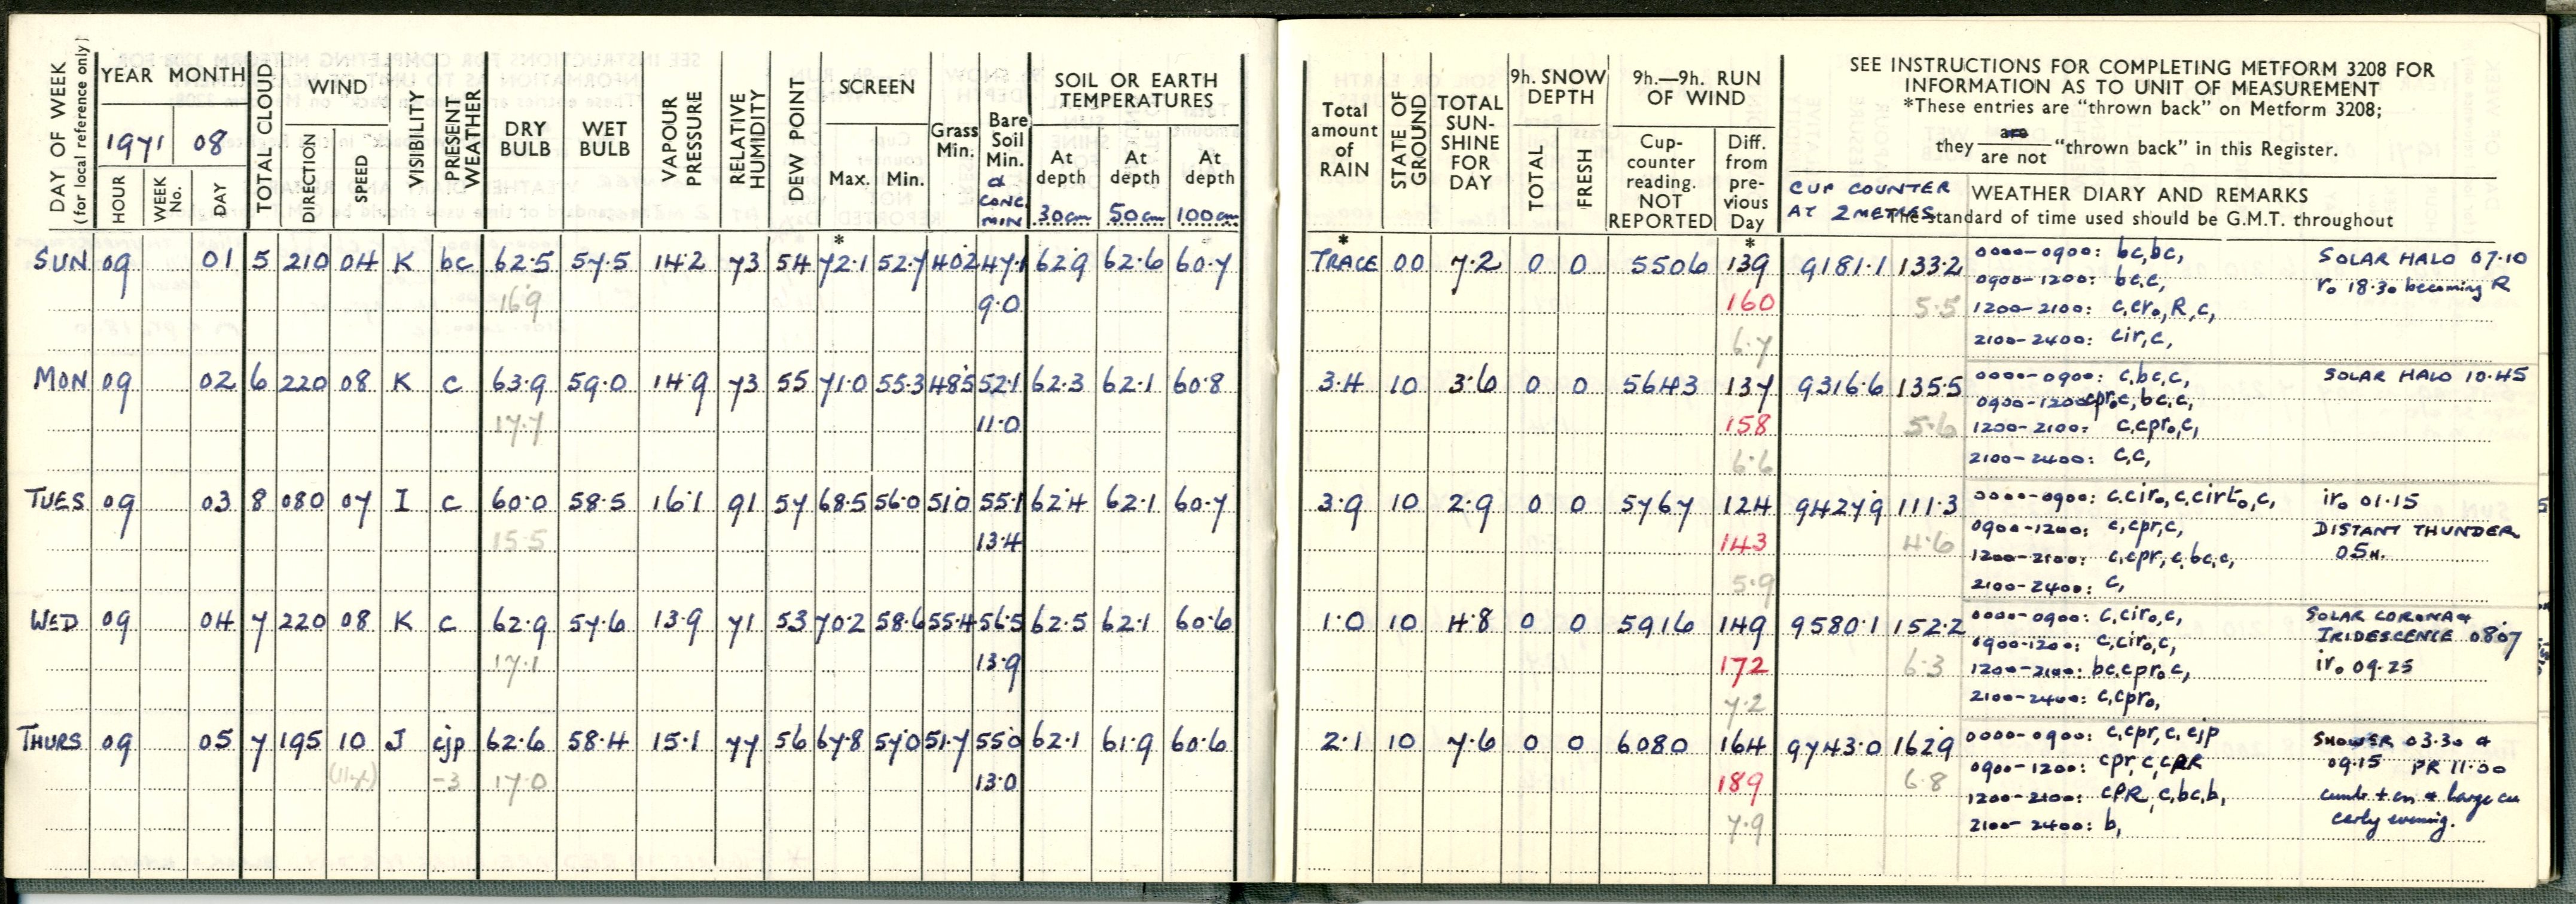 DAY OF WEEK (for local reference only)
YEAR MONTH
1971 08
HOUR WEEK No. DAY
TOTAL CLOUD
WIND
DIRECTION SPEED
VISIBILITY
PRESENT WEATHER
DRY BULB
WET BULB
VAPOUR PRESSURE
RELATIVE HUMIDITY
DEW POINT
SCREEN
Max. Min.
Grass Min.
Bare Soil Min. & CONC. MIN
SOIL OR EARTH TEMPERATURES
At depth 30cm At depth 50cm At depth 100cm
SUN 09 01 5 210 04 K bc 62.5 57.5 14.2 73 54 72.1 52.7 40.2 47.1 62.9 62.6 60.7
16.9 9.0
MON 09 02 6 220 08 K c 63.9 59.0 14.9 73 55 71.0 55.3 48.5 52.1 62.3 62.1 60.8
17.7 11.0
TUES 09 03 8 080 07 I c 60.0 58.5 16.1 91 57 68.5 56.0 51.0 55.1 62.4 62.1 60.7
15.5 13.4
WED 09 04 7 220 08 K c 62.9 57.6 13.9 71 53 70.2 58.6 55.4 56.5 62.5 62.1 60.6
17.1 13.9
THURS 09 05 7 195 10 J cjp 62.6 58.4 15.1 77 56 67.8 57.0 51.7 55.0 62.1 61.9 60.6
-3 17.0 13.0
Total amount of RAIN
STATE OF GROUND
TOTAL SUN-SHINE FOR DAY
9h. SNOW DEPTH
TOTAL FRESH
9h.—9h. RUN OF WIND
Cup-counter reading. NOT REPORTED
Diff. from pre-vious Day
SEE INSTRUCTIONS FOR COMPLETING METFORM 3208 FOR
INFORMATION AS TO UNIT OF MEASUREMENT
*These entries are "thrown back" on Metform 3208;
they are / are not "thrown back" in this Register.
CUP COUNTER
AT 2 METRES
WEATHER DIARY AND REMARKS
The standard of time used should be G.M.T. throughout
* * *
TRACE 00 7.2 0 0 5506 139 9181.1 133.2 0000-0900: bc,bc, SOLAR HALO 07.10
0900-1200: bc,c, ro 18.30 becoming R
160 5.5 1200-2100: c,cro,R,c,
6.7 2100-2400: cir,c,
3.4 10 3.6 0 0 5643 137 9316.6 135.5 0000-0900: c,bc,c, SOLAR HALO 10.45
0900-1200 cproc,bc,c,
158 5.6 1200-2100: c,cpro,c,
6.6 2100-2400: c,c,
3.9 10 2.9 0 0 5767 124 9427.9 111.3 0000-0900: c,ciro,c,cirto,c, iro 01.15
0900-1200: c,cpr,c, DISTANT THUNDER
143 4.6 1200-2100: c,cpr,c,bc,c, 05H.
5.9 2100-2400: c,
1.0 10 4.8 0 0 5916 149 9580.1 152.2 0000-0900: c,ciro,c, SOLAR CORONA &
0900-1200: c,ciro,c, IRIDESCENCE 0807
172 6.3 1200-2100: bc,cpro,c, iro 09.25
7.2 2100-2400: c,cpro,
2.1 10 7.6 0 0 6080 164 9743.0 162.9 0000-0900: c,cpr,c,cjp SHOWER 03.30 &
0900-1200: cpr,c,cPR 09.15 PR 11.00
189 6.8 1200-2100: cPR,c,bc,b, + cn & large cu
7.9 2100-2400: b, early evening.